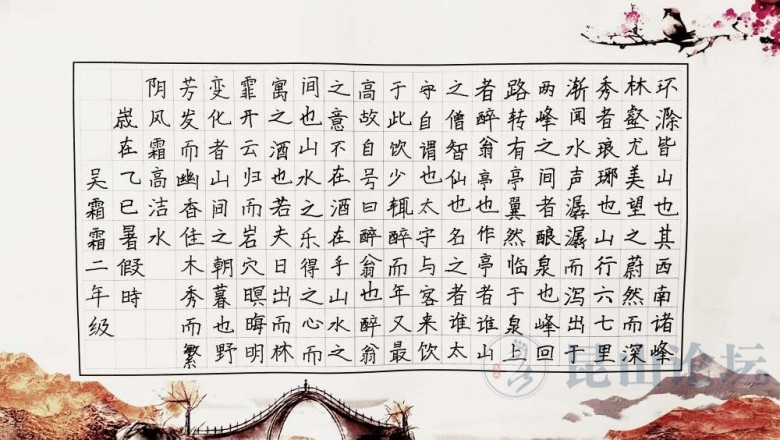 环滁皆山也其西南诸峰
林壑尤美望之蔚然而深
秀者琅琊也山行六七里
渐闻水声潺潺而泻出于
两峰之间者酿泉也峰回
路转有亭翼然临于泉上
者醉翁亭也作亭者谁山
之僧智仙也名之者谁太
守自谓也太守与客来饮
于此饮少辄醉而年又最
高故自号曰醉翁也醉翁
之意不在酒在乎山水之
间也山水之乐得之心而
寓之酒也若夫日出而林
霏开云归而岩穴暝晦明
变化者山间之朝暮也野
芳发而幽香佳木秀而繁
阴风霜高洁水
嵗在乙巳暑假時
吴霜霜二年级
昆山论坛